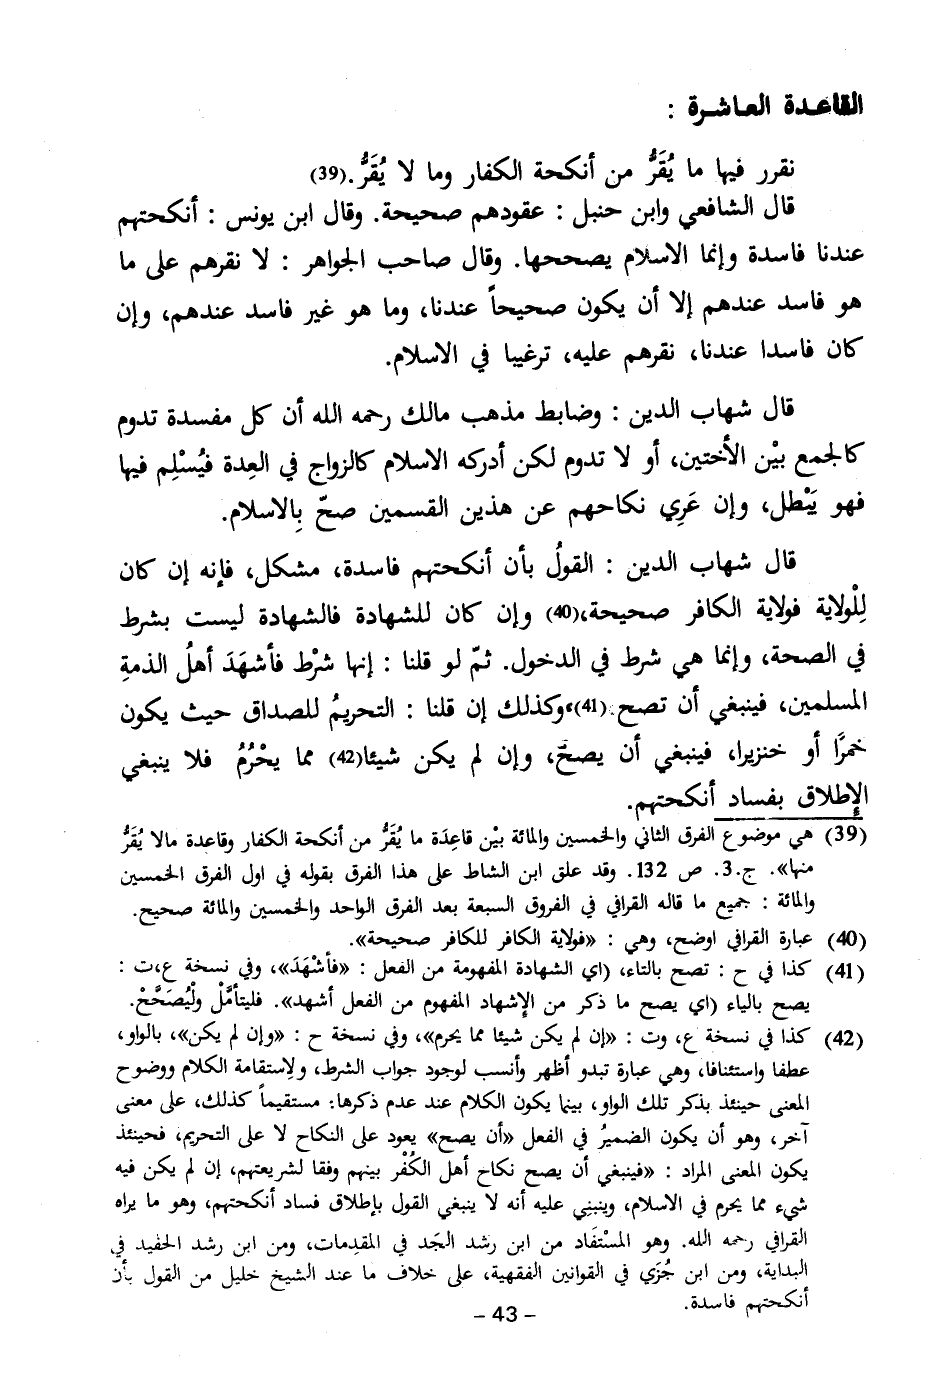 القاعدة العاشرة :
نقرر فيها ما يُقَرُّ من أنكحة الكفار وما لا يُقَرُّ.(39)
قال الشافعي وابن حنبل : عقودهم صحيحة. وقال ابن يونس : أنكحتهم
عندنا فاسدة وإنما الاسلام يصححها. وقال صاحب الجواهر : لا نقرهم على ما
هو فاسد عندهم إلا أن يكون صحيحاً عندنا، وما هو غير فاسد عندهم، وإن
كان فاسدا عندنا، نقرهم عليه، ترغيبا في الاسلام.
قال شهاب الدين : وضابط مذهب مالك رحمه الله أن كل مفسدة تدوم
كالجمع بيْن الأختين، أو لا تدوم لكن أدركه الاسلام كالزواج في العِدة فيُسْلِم فيها
فهو يَبْطل، وإن عَرِي نكاحهم عن هذين القسمين صحّ بِالاسلام.
قال شهاب الدين : القولُ بأن أنكحتهم فاسدة، مشكل، فإنه إن كان
لِلْولاية فولاية الكافر صحيحة،(40) وإن كان للشهادة فالشهادة ليست بشرط
في الصحة، وإنما هي شرط في الدخول. ثمّ لو قلنا : إنها شرْط فأشهَدَ أهلُ الذمةِ
المسلمين، فينبغي أن تصح.(41)،وكذلك إن قلنا : التحريمُ للصداق حيث يكون
خمرًا أو خنزيرا، فينبغي أن يصحَّ، وإن لم يكن شيئا(42) مما يحْرُمُ فلا ينبغي
الإطلاق بفساد أنكحتهم.
(39) هي موضوع الفرق الثاني والخمسين والمائة بيْن قاعِدَة ما يُقَرُّ من أنكحة الكفار وقاعدة مالا يُقَرُّ
منها». ج.3. ص 132. وقد علق ابن الشاط على هذا الفرق بقوله في اول الفرق الخمسين
والمائة : جميع ما قاله القرافي في الفروق السبعة بعد الفرق الواحد والخمسين والمائة صحيح.
(40) عبارة القرافي اوضح، وهي : «فولاية الكافر للكافر صحيحة».
(41) كذا في ح : تصح بالتاء، (اي الشهادة المفهومة من الفعل : «فأشْهَدَ»، وفي نسخة ع،ت :
يصح بالياء (اي يصح ما ذكر من الإشهاد المفهوم من الفعل أشهد». فليتأمَّلْ ولْيُصَحَّحْ.
(42) كذا في نسخة ع، وت : «إن لم يكن شيئا مما يحرم»، وفي نسخة ح : «وإن لم يكن»، بالواو،
عطفا واستئنافا، وهي عبارة تبدو أظهر وأنسب لوجود جواب الشرط، ولاِستقامة الكلام ووضوح
المعنى حينئذ بذكر تلك الواو، بينما يكون الكلام عند عدم ذكرها: مستقيماً كذلك، على معنى
آخر، وهو أن يكون الضميرُ في الفعل «أن يصح» يعود على النكاح لا على التحريم، فحينئذ
يكون المعنى المراد : «فينبغي أن يصح نكاح أهل الكُفْر بينهم وفقا لشريعتهم، إن لم يكن فيه
شيء مما يحرم في الاسلام، وينبنِي عليه أنه لا ينبغي القول بإطلاق فساد أنكحتهم، وهو ما يراه
القرافي رحمه الله. وهو المسْتفَاد من ابن رشد الجَد في المقدِمات، ومن ابن رشد الحفيد في
البداية، ومن ابن جُزَي في القوانين الفقهية، على خلاف ما عند الشيخ خليل من القول بأن
أنكحتهم فاسدة.
- 43 -